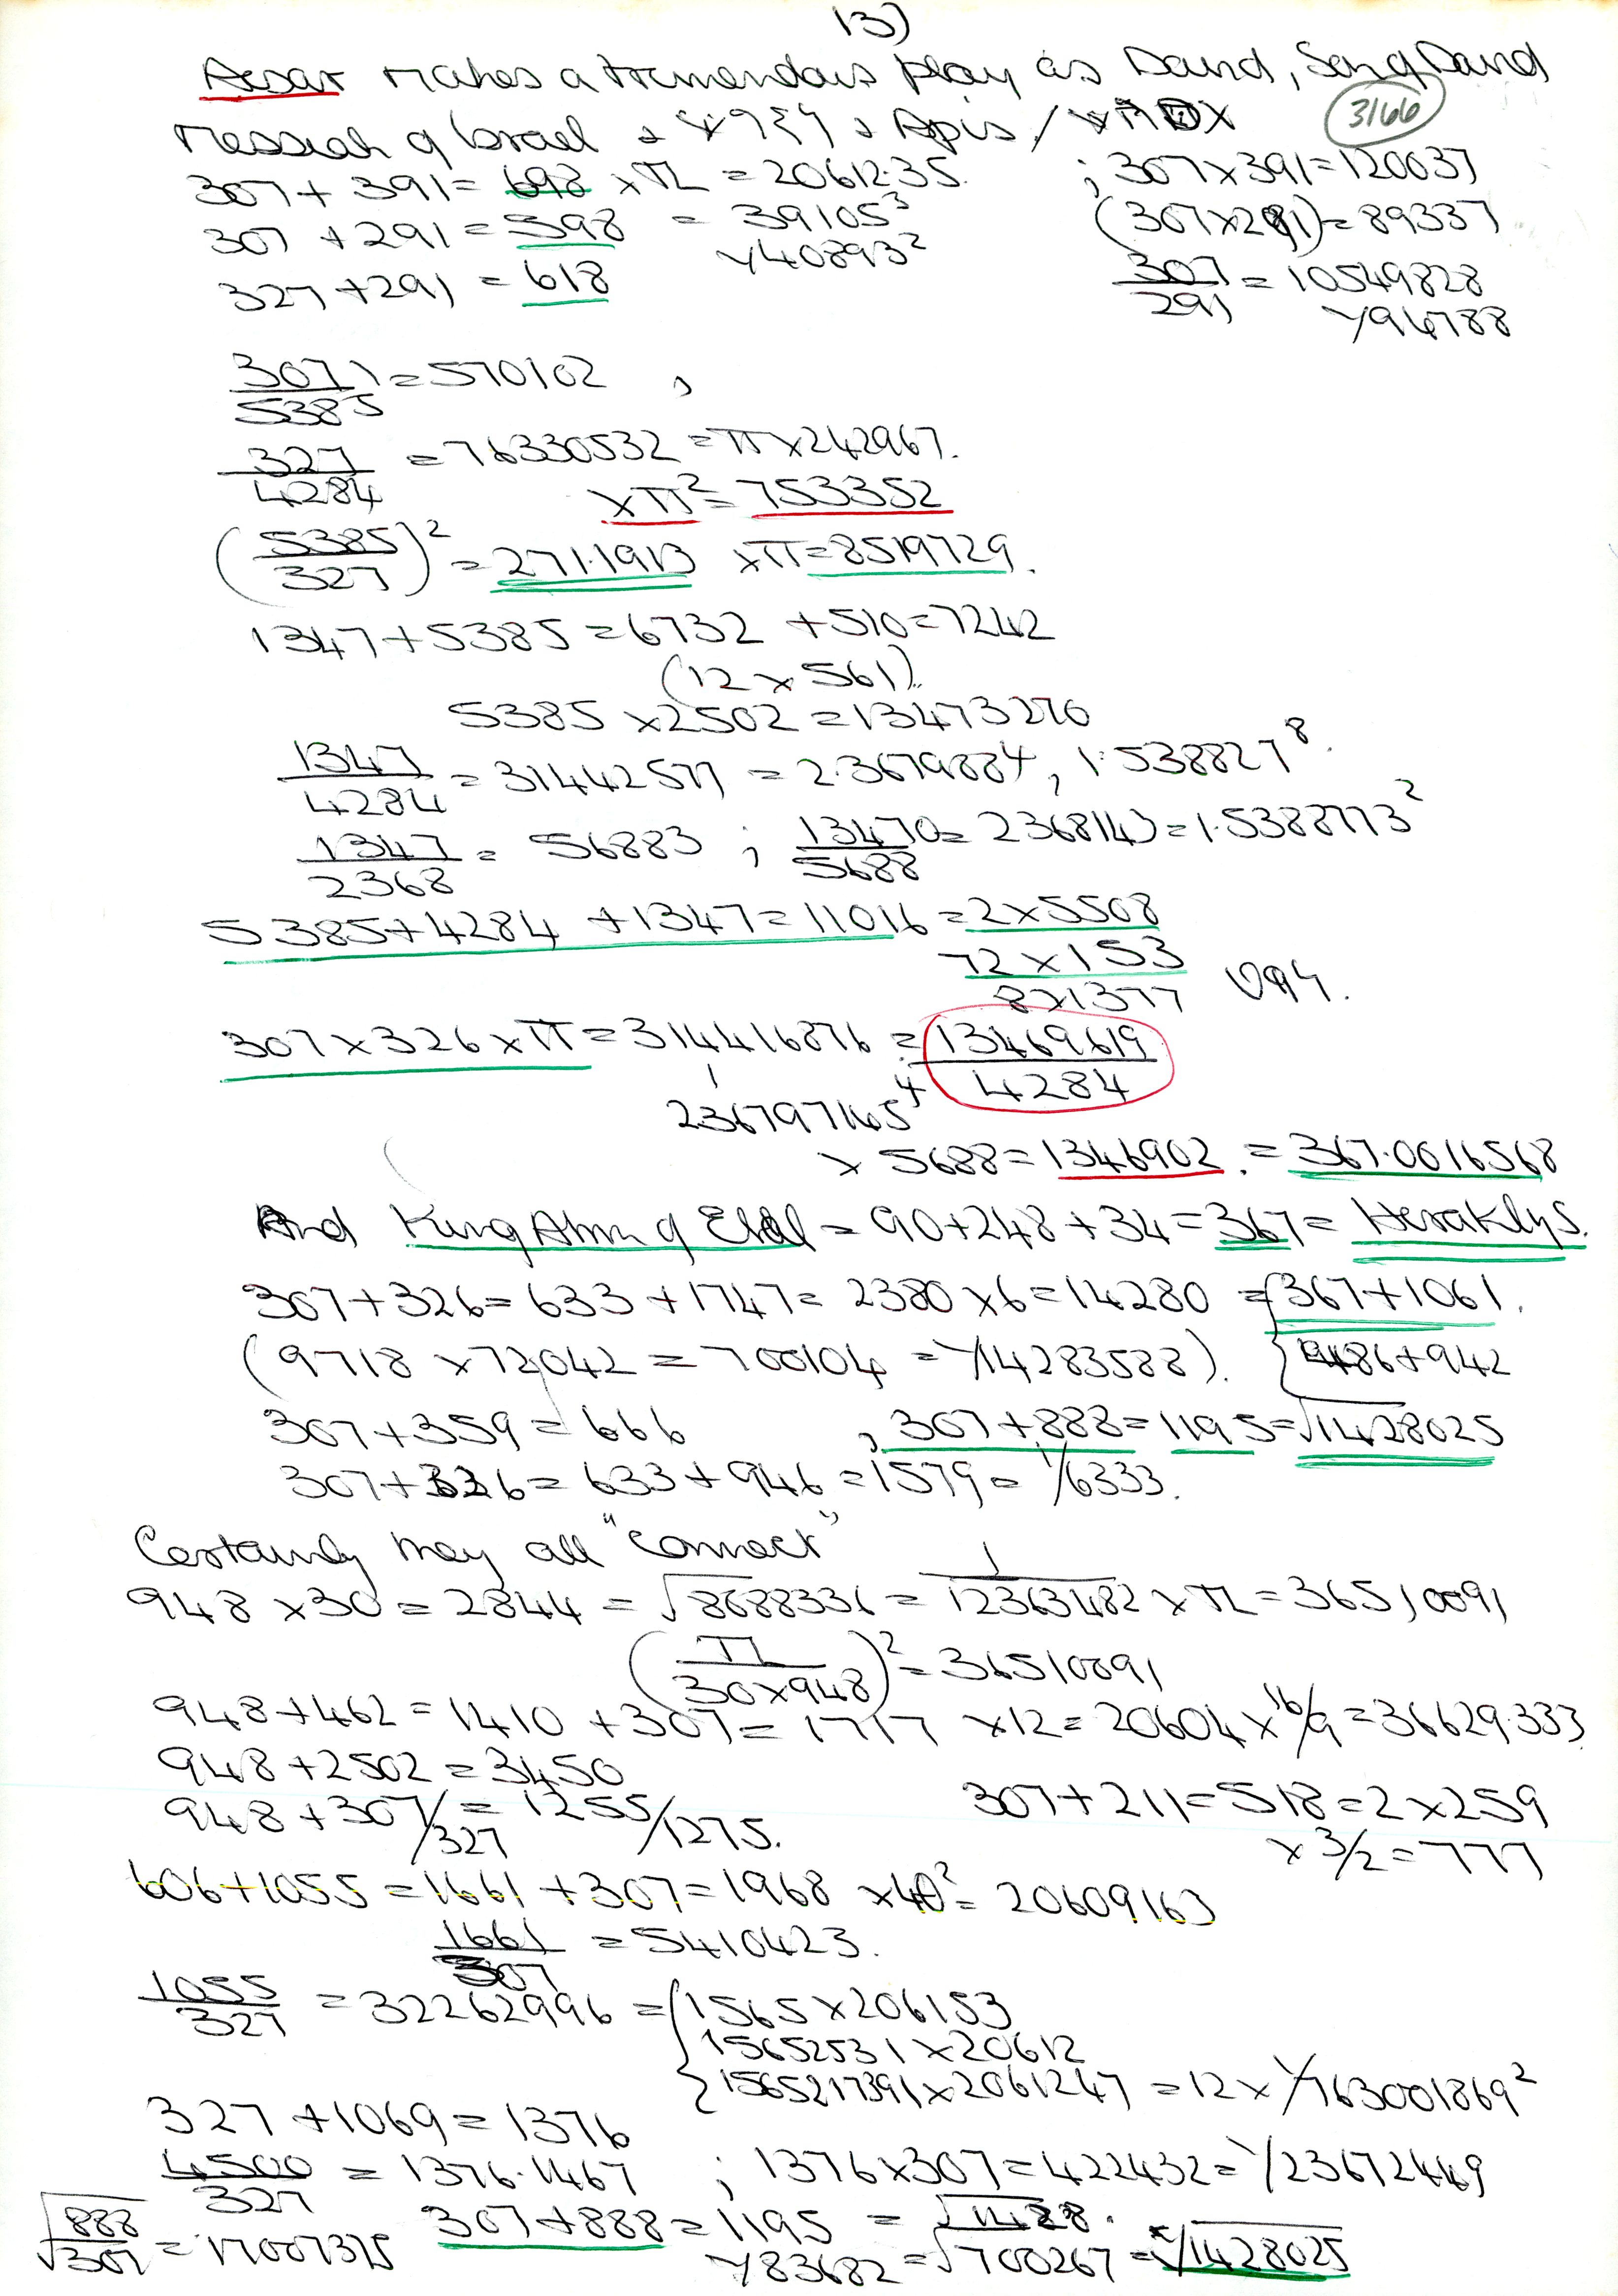 13)
Aesar makes a tremendous play as David, Son of David
3166
Messiah of Israel + + Apis /
307 + 391 = 698 × π = 20612.35. ; 307 × 391 = 120037
307 + 291 = 598 = 39105³ (307 × 291) = 89337
Y40893²
327 + 291 = 618 307/291 = 10549828
Y94788
307/5385 = 570102 ,
327/4284 = 76330532 = π × 242967.
× π² = 753352
(5385/327)² = 271.1913 × π = 8519729.
1347 + 5385 = 6732 + 510 = 7242
(12 × 561).
5385 × 2502 = 13473270
1347/4284 = 31442577 = 2.367988⁴, 1.538827⁸.
1347/2368 = 56883 ; 13470/5688 = 2368143 = 1.5388773²
5385 + 4284 + 1347 = 11016 = 2 × 5508
72 × 153
8 × 1377
307 × 326 × π = 314416876 = 13469619/4284
236797165⁴
× 5688 = 1346902. = 367.0016568
And King Atm of Elal = 90 + 248 + 34 = 367 = Heraklys.
307 + 326 = 633 + 1747 = 2380 × 6 = 14280 = { 367 + 1061.
(9718 × 72042 = 700104 = Y14283588). { 486 + 942
307 + 359 = 666 , 307 + 888 = 1195 = √1428025
307 + 326 = 633 + 946 = 1579 = 1/6333.
Certainly they all "Connect"
948 × 30 = 2844 = √8088336 = 1/12363482 × π = 36510091
(π/30×948)² = 36510091
948 + 462 = 1410 + 307 = 1717 × 12 = 20604 × 16/9 = 36629.333
948 + 2502 = 3450
948 + 307/327 = 1255/1275. 307 + 211 = 518 = 2 × 259
× 3/2 = 777
606 + 1055 = 1661 + 307 = 1968 × 40² = 20609163
1661/307 = 5410423.
1055/327 = 32262996 = { 1565 × 206153
15652531 × 20612
{ 1565217391 × 2061247 = 12 × Y763001869²
327 + 1069 = 1376
4500/327 = 1376.1467 ; 1376 × 307 = 422432 = Y23672449
√888/307 = 17007375 307 + 888 = 1195 = √1428.
Y83682 = √700267 = √1428025